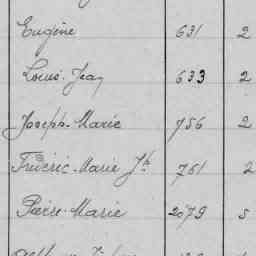 Eugène 631 2
Louis-Jean 633 2
Joseph-Marie 756 2
Frédéric-Marie Jh 761 2
Pierre-Marie 2079 5